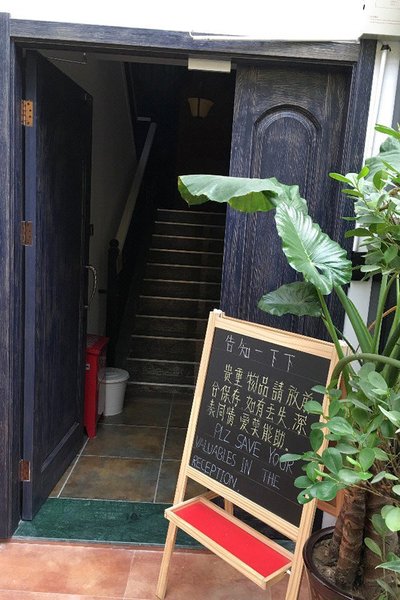 告知一下下
貴重物品請放前
台保存如有丟失,深
表同情,愛莫能助.
PLZ SAVE YOUR
VALUABLES IN THE
RECEPTION.